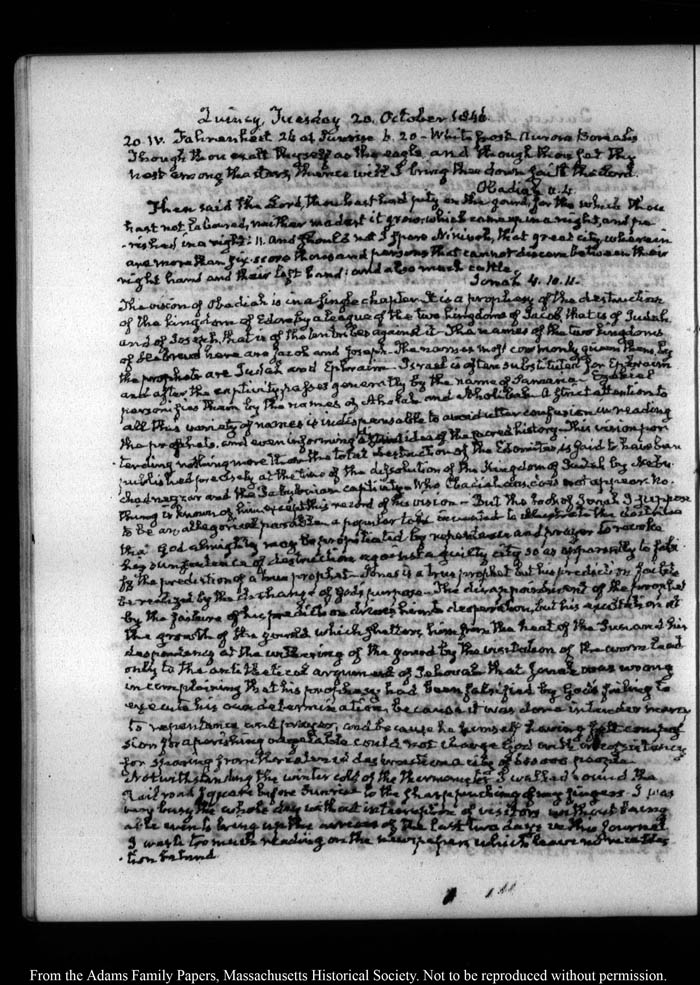 Quincy, Tuesday 20. October 1846
20. IV. Fahrenheit 26 at Sunrise 6. 20 - White frost Aurora Borealis
Though thou exalt thyself as the eagle, and though thou set thy
nest among the stars, thence will I bring thee down saith the Lord.
Obadiah v. 4.
Then said the Lord, thou hast had pity on the gourd, for the which thou
hast not laboured, neither madest it grow, which came up in a night, and pe
-rished in a night: 11. and should not I spare Nineveh, that great city, wherein
are more than six-score thousand persons that cannot discern between their
right hand and their left hand; and also much cattle.
Jonah 4. 10. 11.
The vision of Obadiah is in a single chapter. It is a prophesy of the destruction
of the kingdom of Edom by a league of the two kingdoms of Jacob that is of Judah
and of Joseph, that is of the ten tribes against it - The names of the two kingdoms
of Hebrews here are Jacob and Joseph. The names most commonly given them by
the prophets are Judah and Ephraim - Israel is often substituted for Ephraim
and after the captivity passes generally by the name of Samaria - Ezekiel
personifies them by the names of Aholah and Aholibah. A strict attention to
all this variety of names is indispensable to avoid utter confusion in reading
the prophets, and even in forming a distinct idea of the sacred history. This vision por
-tending nothing more than the total destruction of the Edomites is said to have been
published precisely at the time of the dissolution of the Kingdom of Judah by Nebu
chadnezzar and the Babylonian captivity. Who Obadiah was does not appear. No
thing is known of him except this record of his vision - But the book of Jonah I suppose
to be an allegorical parable in a popular tale invented to illustrate the doctrine
that God almighty may be propitiated by repentance and prayer to revoke
his own sentence of destruction against a guilty city so as apparently to falsi
fy the prediction of a true prophet - Jonas is a true prophet but his prediction fails to
be realized by the change of God's purpose - The disappointment of the prophet
by the failure of his prediction drives him to desperation, but his exultation at
the growth of the gourd which shelters him from the heat of the Sun and his
despondency at the withering of the gourd by the visitation of the worm lead
only to the antithetical argument of Jehovah that Jonah was wrong
in complaining that his prophesy had been falsified by God's failing to
execute his own determination, because it was done in tender mercy
to repentance and prayer, and because he himself having felt compas
sion for a perishing vegetable could not charge God with inconsistency
for sparing from threatened destruction a city of 600 000 people
Notwithstanding the winter cold of the thermometer I walked round the
Rail road square before Sunrise to the sharp pinching of my fingers. I was
very busy the whole day without interruption of visitors without being
able even to bring up the arrears of the last two days in this Journal
I waste too much reading on the newspapers which leave no
-tion behind
From the Adams Family Papers, Massachusetts Historical Society. Not to be reproduced without permission.